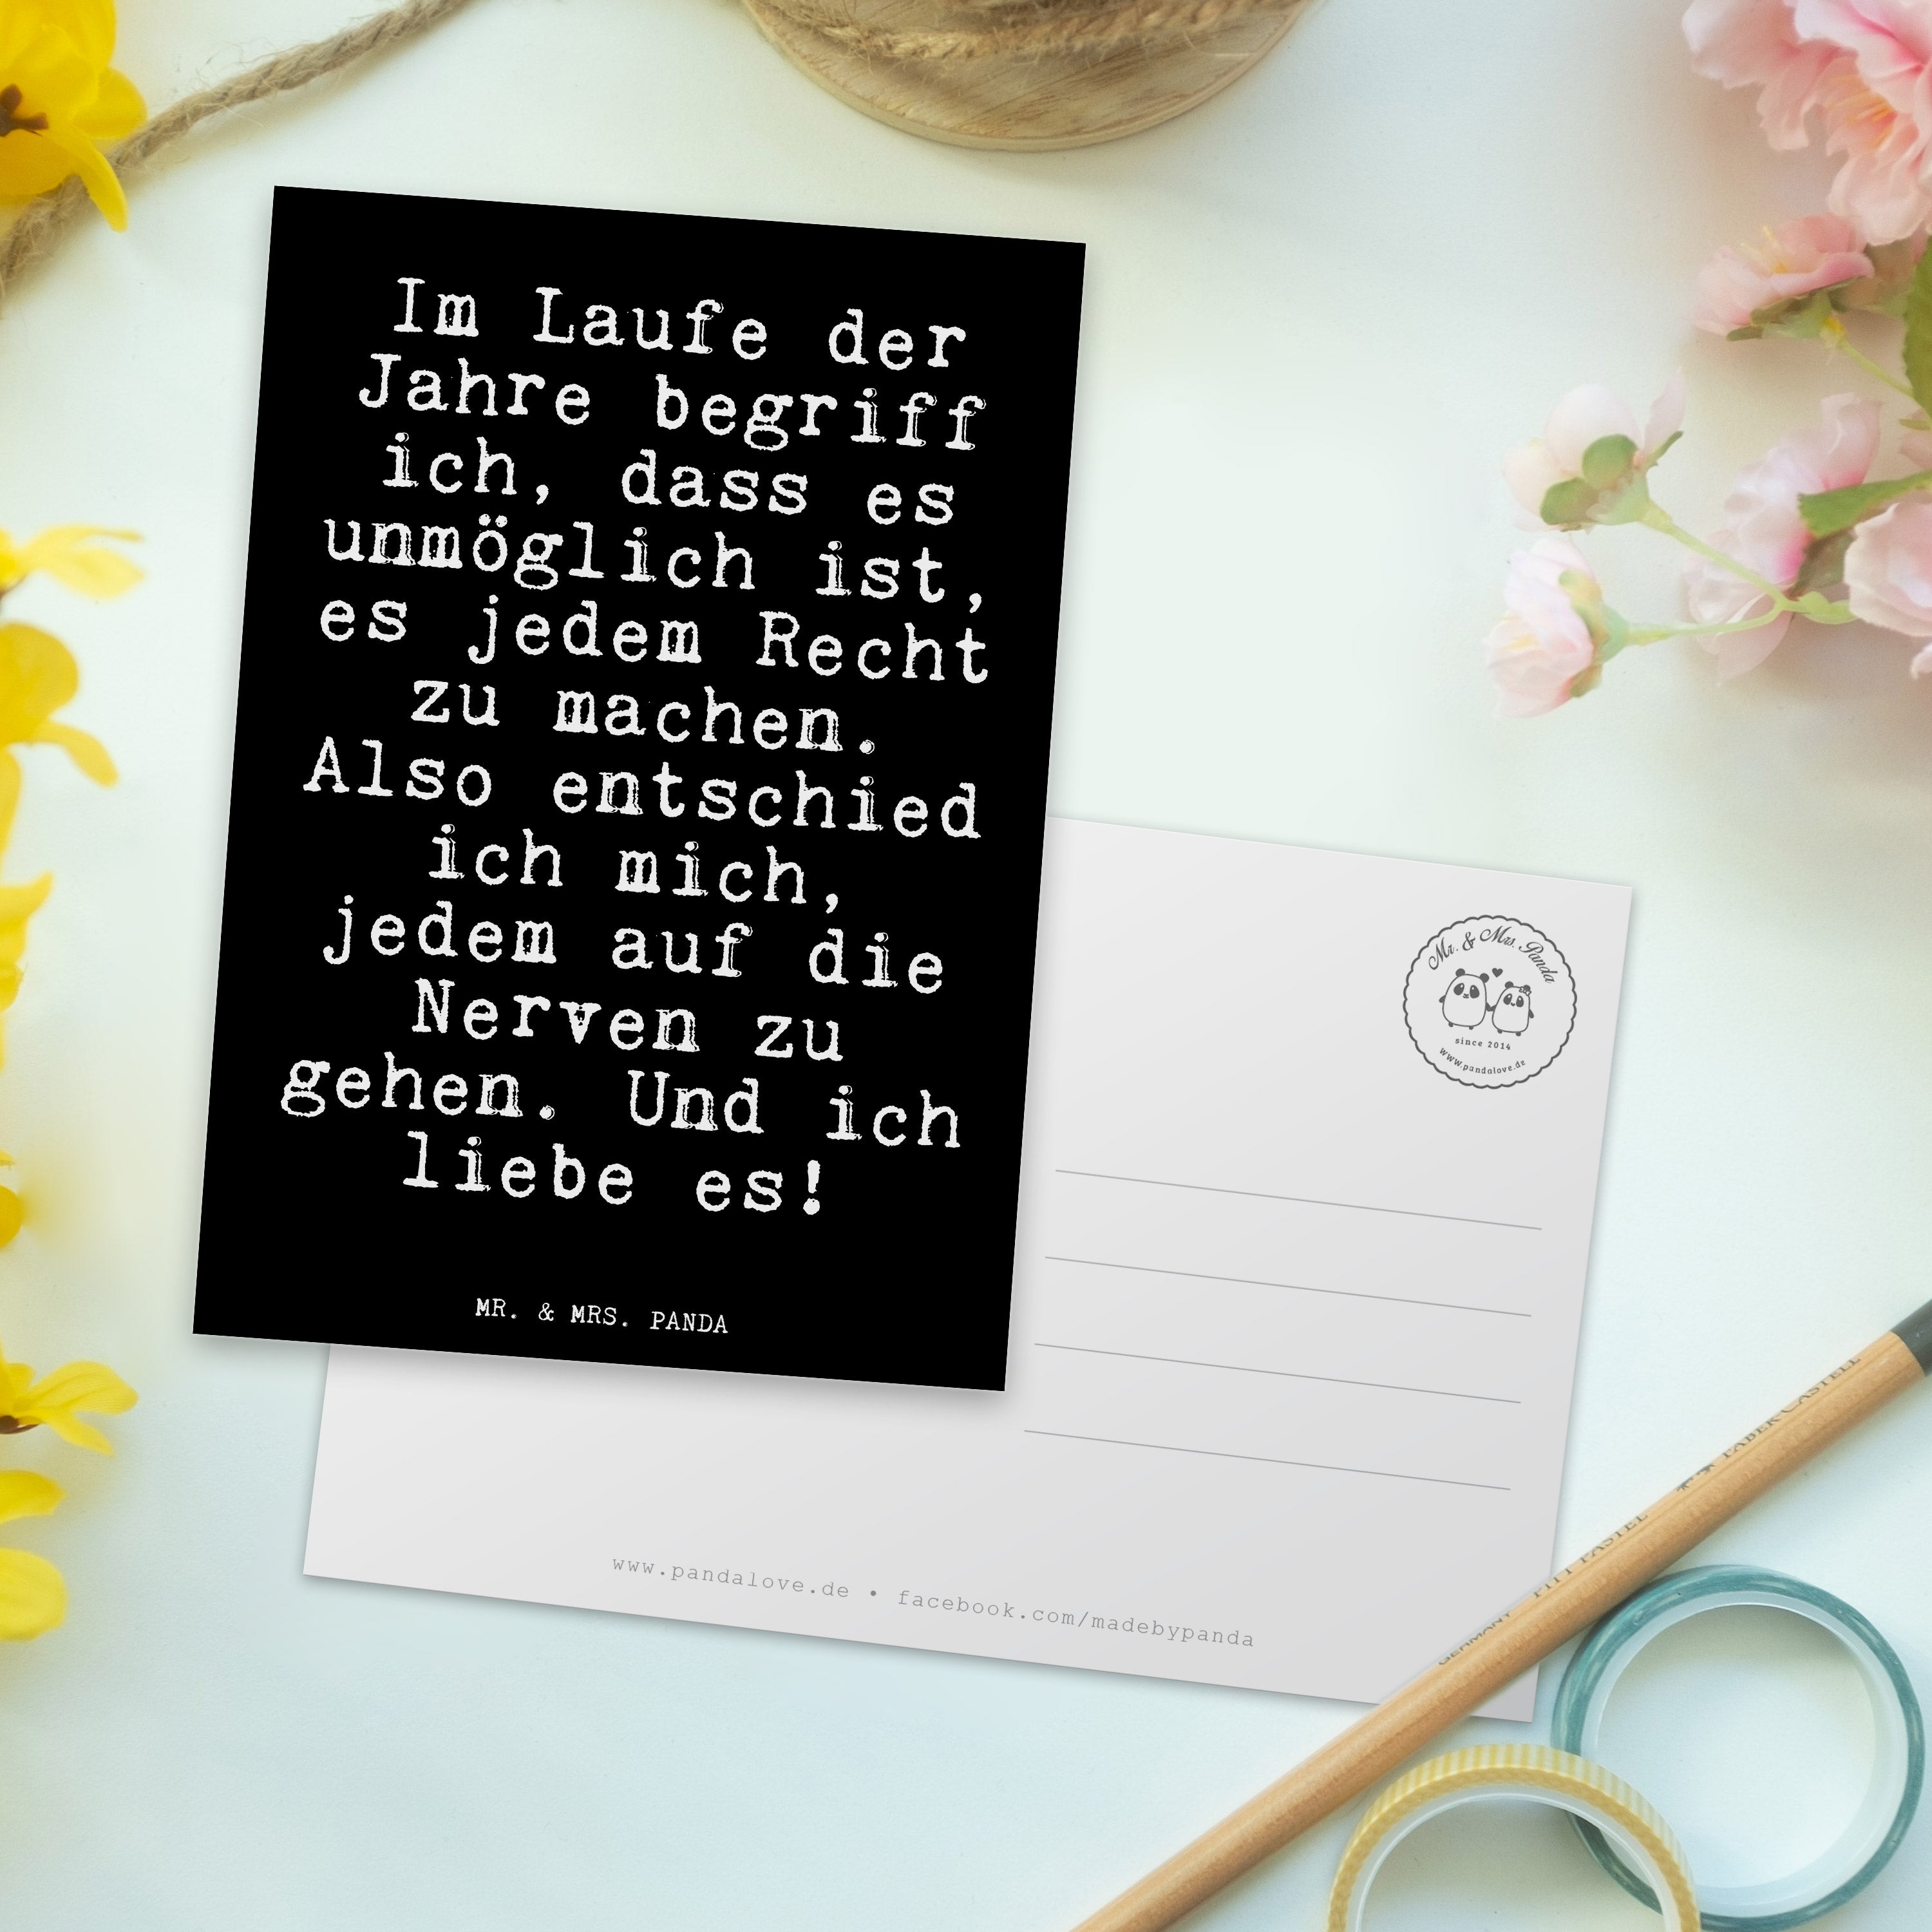 Im Laufe der
Jahre begriff
ich, dass es
unmöglich ist,
es jedem Recht
zu machen.
Also entschied
ich mich,
jedem auf die
Nerven zu
gehen. Und ich
liebe es!
MR. & MRS. PANDA
Mr. & Mrs. Panda
since 2014
www.pandalove.de
www.pandalove.de • facebook.com/madebypanda
GERMANY PITT PASTEL FABER-CASTELL